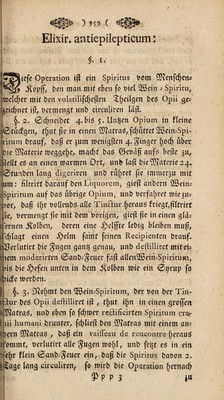 ( 959 )
Elixir. antiepilepticum:
§. 1.
Diese Operation ist ein Spiritus vom Menschen-
Kopff, den man mit eben so viel Wein-Spiritu,
welcher mit den volatilischesten Theilgen des Opii ge-
zeichnet ist, vermengt und circuliren läst.
§. 2. Schneidet 4. bis 5. Untzen Opium in kleine
Stückgen, thut sie in einen Matras, schüttet Wein-Spi-
ritum drauf, daß er zum wenigsten 4. Finger hoch über
die Materie weggehe, macht das Gefäß aufs beste zu,
stellt es an einen warmen Ort, und laßt die Materie 24.
Stunden lang digeriren und rühret sie immerzu mit
um: filtrirt darauf den Liquorem, giest andern Wein-
Spiritum auf das übrige Opium, und verfahrt wie zu-
vor, daß ihr vollends alle Tinctur heraus kriegt, filtrirt
sie, vermengt sie mit dem vorigen, giest sie in einen glä-
sernen Kolben, deren eine Helffte ledig bleiben muß,
schlagt einen Helm samt seinen Recipienten drauf.
Verlutirt die Fugen gantz genau, und destilliret mit ei-
nem moderirten Sand-Feuer fast allen Wein-Spiritum,
bis die Hefen unten in dem Kolben wie ein Syrup so
dicke werden.
§. 3. Nehmt den Wein-Spiritum, der von der Tin-
ctur des Opii destilliret ist, thut ihn in einen grossen
Matras, und eben so schwer rectificirten Spiritum cra-
nii humani drunter, schließ den Matras mit einem an-
dern Matras, daß ein vaisseau de rencontre heraus
kommt, verlutirt alle Fugen wohl, und setzt es in ein
sehr klein Sand-Feuer ein, daß die Spiritus davon 2.
Tage lang circuliren, so wird die Operation hernach
P p p 3 zu